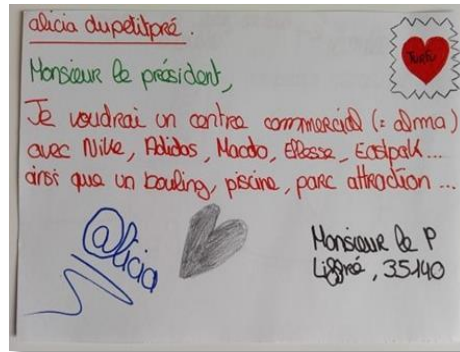 alicia dupetitpré.
TURFU
Monsieur le président,
Je voudrai un centre commercial (= alma)
avec Nike, Adidas, Macdo, Ellesse, Eastpak...
ainsi que un bouling, piscine, parc attraction ...
@licia
Monsieur le P
Liffré, 35140